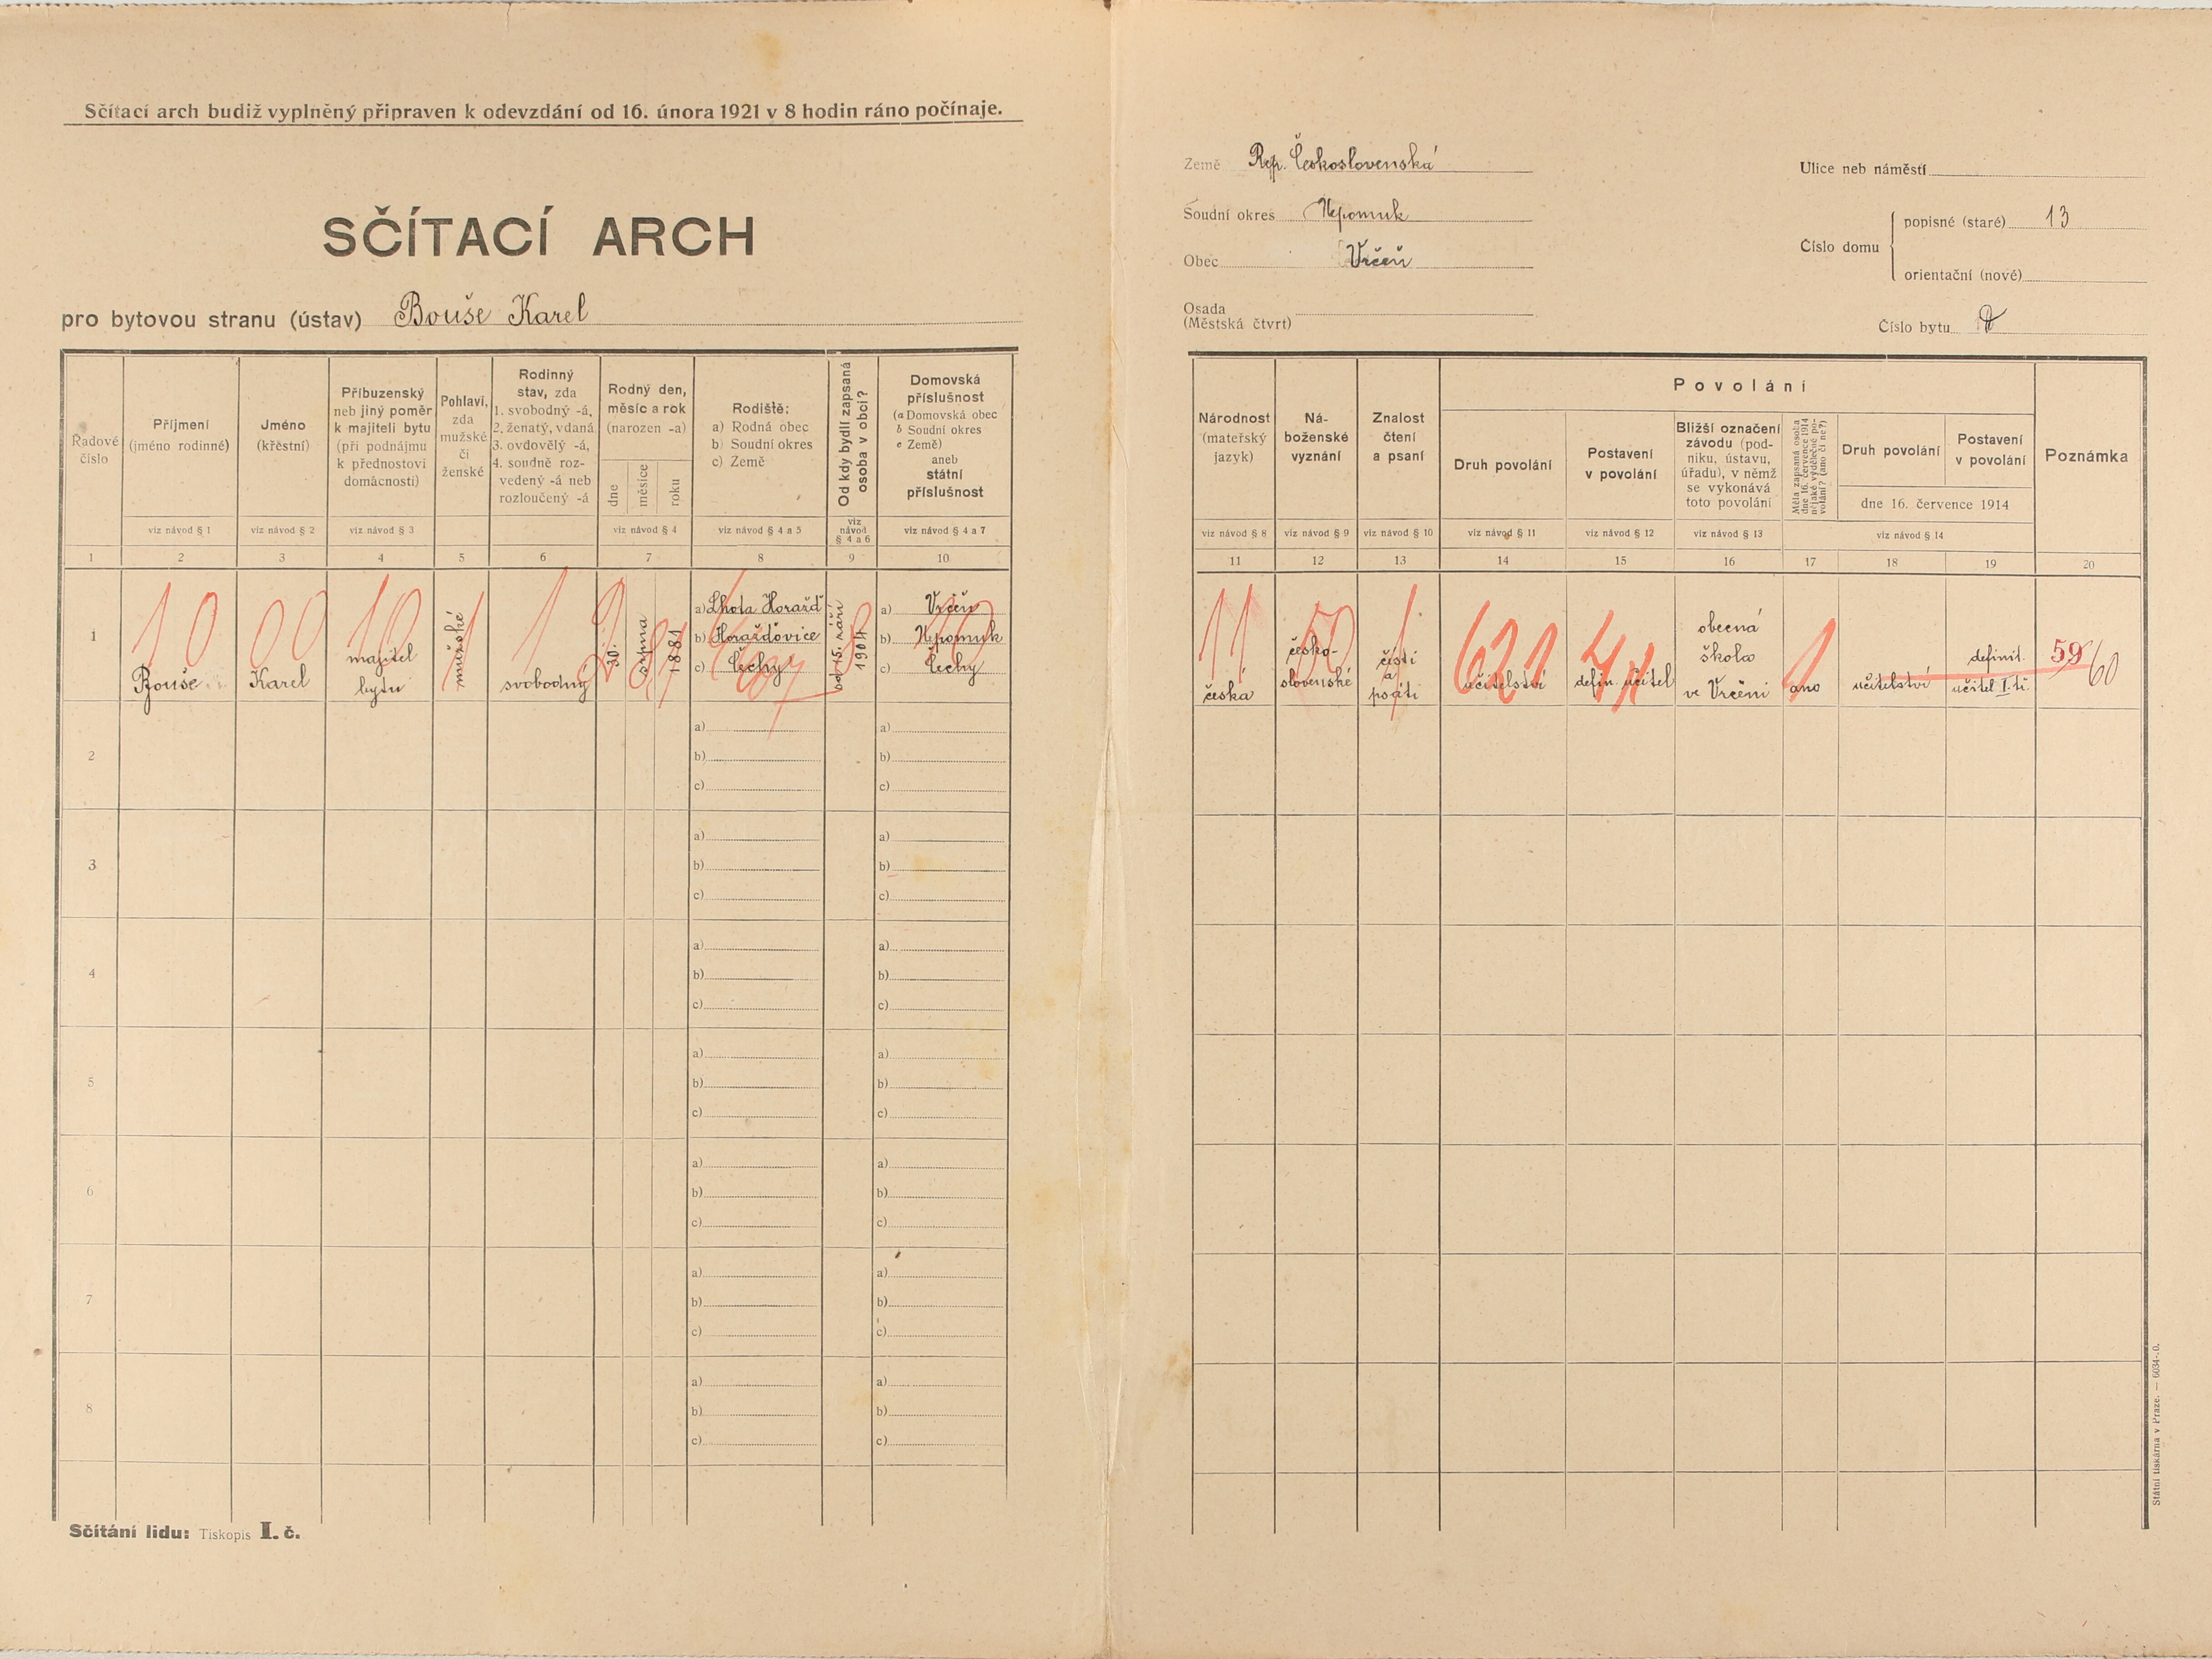 Sčítací arch budiž vyplněný připraven k odevzdání od 16. února 1921 v 8 hodin ráno počínaje.
SČÍTACÍ ARCH
pro bytovou stranu (ústav) Bouše Karel
Země Rep. Československá
Soudní okres Nepomuk
Obec Vrčeň
Osada
(Městská čtvrt)
Ulice neb náměstí
Číslo domu
popisné (staré) 13
orientační (nové)
Číslo bytu
Řadové
číslo
Příjmení
(jméno rodinné)
Jméno
(křestní)
Příbuzenský
neb jiný poměr
k majiteli bytu
(při podnájmu
k přednostovi
domácnosti)
Pohlaví,
zda
mužské
či
ženské
Rodinný
stav, zda
1. svobodný -á,
2. ženatý, vdaná
3. ovdovělý -á,
4. soudně roz-
vedený -á neb
rozloučený -á
Rodný den,
měsíc a rok
(narozen -a)
dne
měsíce
roku
Rodiště:
a) Rodná obec
b) Soudní okres
c) Země
Od kdy bydlí zapsaná
osoba v obci?
Domovská
příslušnost
(a Domovská obec
b Soudní okres
c Země)
aneb
státní
příslušnost
viz návod § 1
viz návod § 2
viz návod § 3
viz návod § 4
viz návod § 4 a 5
viz
návod
§ 4 a 6
viz návod § 4 a 7
1 2 3 4 5 6 7 8 9 10
Národnost
(mateřský
jazyk)
Ná-
boženské
vyznání
Znalost
čtení
a psaní
Povolání
Druh povolání
Postavení
v povolání
Bližší označení
závodu (pod-
niku, ústavu,
úřadu), v němž
se vykonává
toto povolání
Měla zapsaná osoba
dne 16. července 1914
nějaké výdělečné po-
volání? (ano či ne?)
Druh povolání
Postavení
v povolání
dne 16. července 1914
Poznámka
viz návod § 8
viz návod § 9
viz návod § 10
viz návod § 11
viz návod § 12
viz návod § 13
viz návod § 14
11 12 13 14 15 16 17 18 19 20
1
10
Bouše
00
Karel
10
majitel
bytu
mužské
1
1
svobodný
30.
srpna
1881
a) Lhota Horažď
b) Horažďovice
c) Čechy
od 15. září
1904
a) Vrčeň
b) Nepomuk
c) Čechy
11
česká
50
česko-
slovenské
1
čísti
a
psáti
621
učitelství
defin. učitel
obecná
škola
ve Vrčeni
1
ano
učitelství
definit.
učitel I. tř.
59
60
2
a)
b)
c)
a)
b)
c)
3
a)
b)
c)
a)
b)
c)
4
a)
b)
c)
a)
b)
c)
5
a)
b)
c)
a)
b)
c)
6
a)
b)
c)
a)
b)
c)
7
a)
b)
c)
a)
b)
c)
8
a)
b)
c)
a)
b)
c)
Sčítání lidu: Tiskopis I. č.
Státní tiskárna v Praze. — 6034-.0.